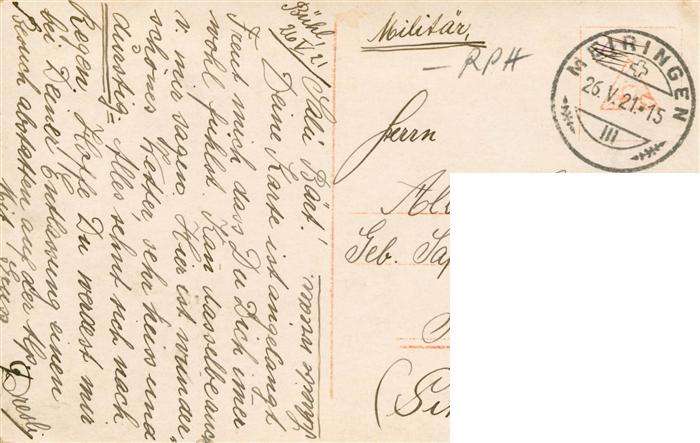 Bühl
26.V.21
Sali Bärti!
Deine Karte ist angelangt
Freut mich dass Du Dich imer
wohl fühlst. Kan dasselbe auch
v. mir sagen. Hier ist wunder
schönes Wetter sehr heis und
durstig = Alles sehnt sich nach
Regen. Hoffe Du werdest mir
bei Deiner Entlassung einen
Besuch abstatten auf der Alp
Mit Gruss
Militär,
RPH
MEIRINGEN
26.V.21.-15
III
Herrn
Geb.